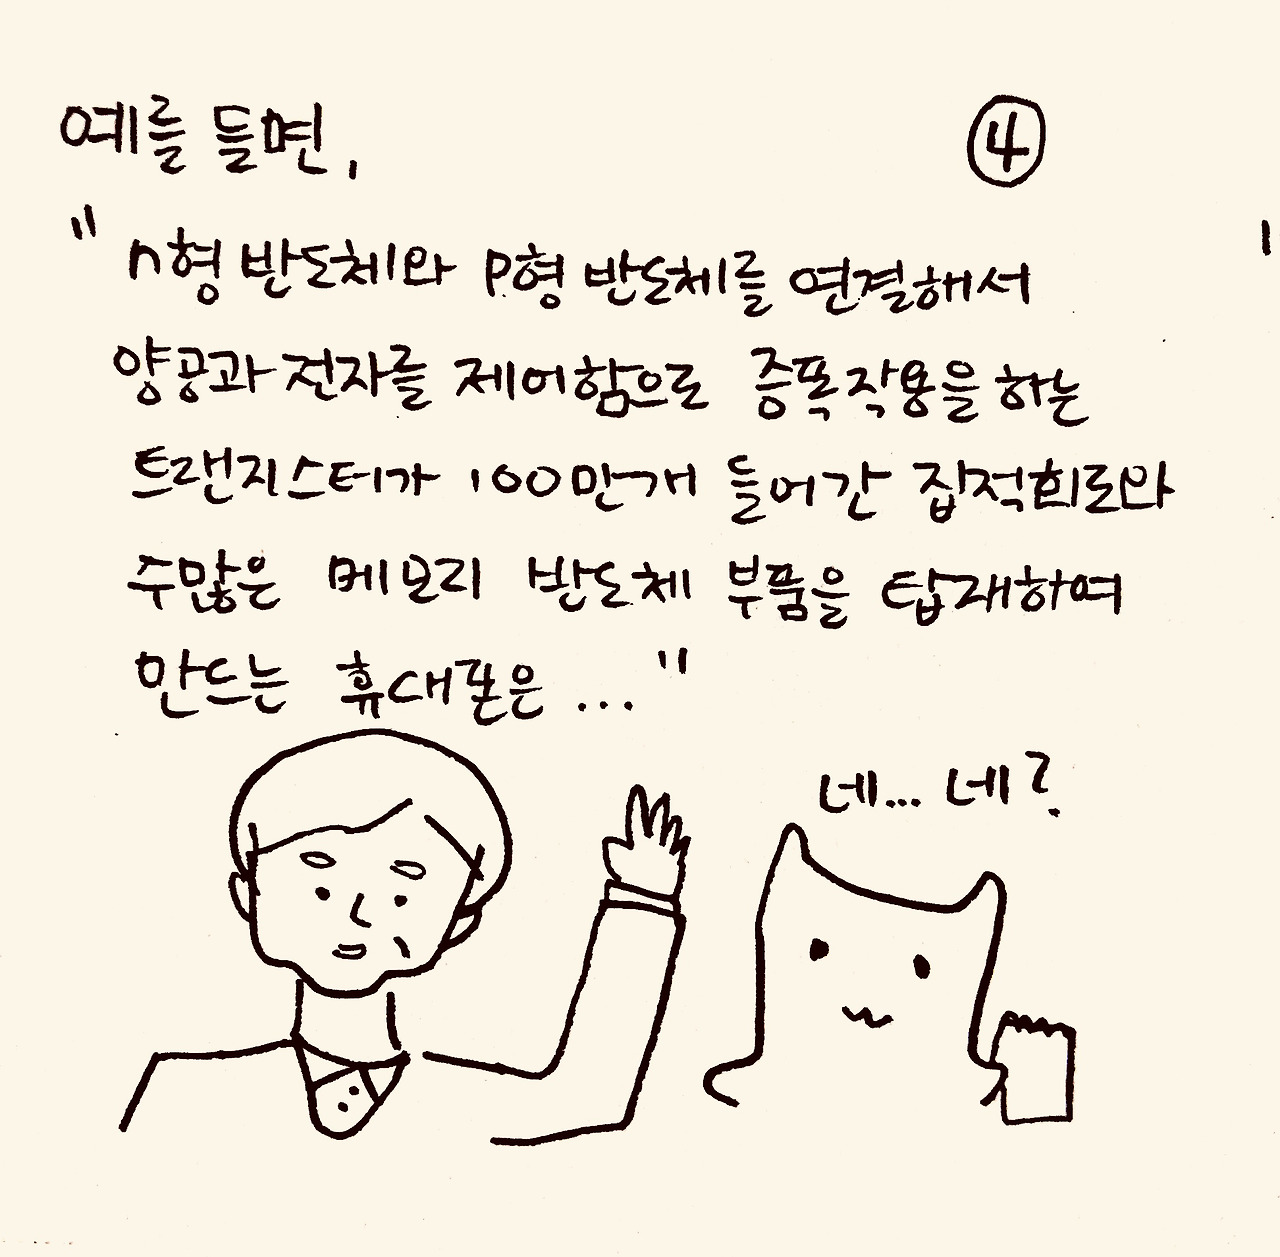 예를 들면,
④
"n형 반도체와 P형 반도체를 연결해서
양공과 전자를 제어함으로 증폭작용을 하는
트랜지스터가 100만개 들어간 집적회로와
수많은 메모리 반도체 부품을 탑재하여
만드는 휴대폰은..."
네... 네?